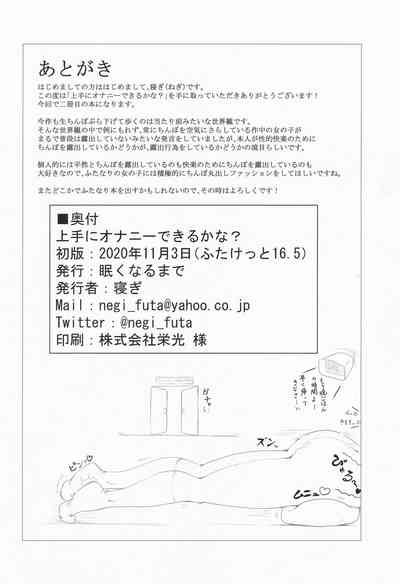 あとがき
はじめましての方ははじめまして、寝ぎ(ねぎ)です。
この度は「上手にオナニーできるかな?」を手に取っていただきありがとうございます!
今回で二冊目の本になります。
今作も生ちんぽぶら下げて歩くのは当たり前みたいな世界観です。
そんな世界観の中で例にもれず、常にちんぽを空気にさらしている作中の女の子が
まるで普段は露出していないみたいな発言をしていましたが、本人が性的快楽のために
ちんぽを露出しているかどうかが、露出行為をしているかどうかの境目らしいです。
個人的には平然とちんぽを露出しているのも快楽のためにちんぽを露出しているのも
大好きなので、ふたなりの女の子には積極的にちんぽ丸出しファッションをしてほしいですね。
またどこかでふたなり本を出すかもしれないので、その時はよろしくです!
■奥付
上手にオナニーできるかな?
初版:2020年11月3日(ふたけっと16.5)
発行:眠くなるまで
発行者:寝ぎ
Mail:negi_futa@yahoo.co.jp
Twitter:@negi_futa
印刷:株式会社栄光 様
ガチャ
ズン
ピーン
ムニュ
びゅる